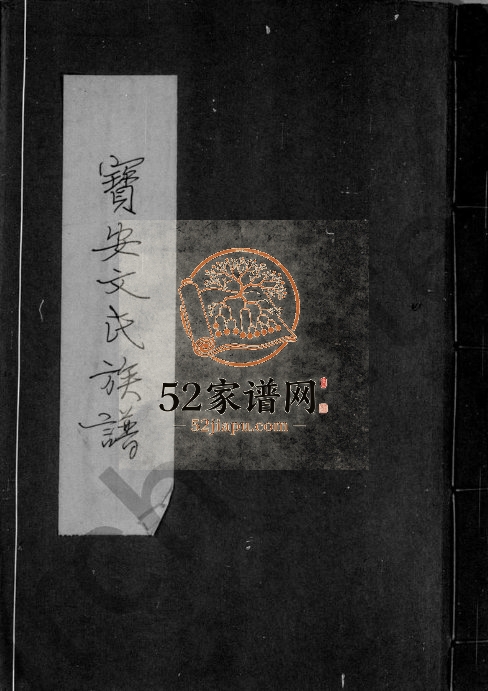 寶安文氏族譜
52家谱网
52jiapu.com